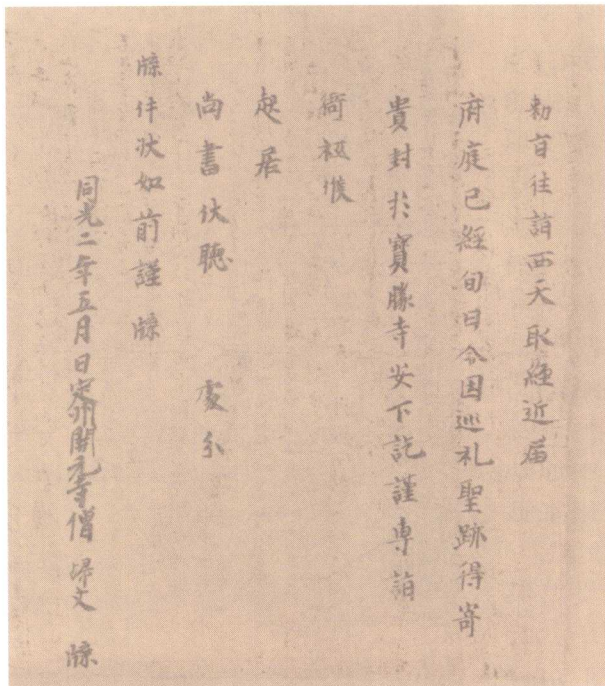 勑旨往詣西天取經近届
府庭已經旬日今因巡礼聖跡得寄
貴封於寶勝寺安下訖謹專詣
衙祗候
起居
尚書伏聽 處分
牒件狀如前謹牒
同光二年五月日定州開元寺僧 歸文 牒